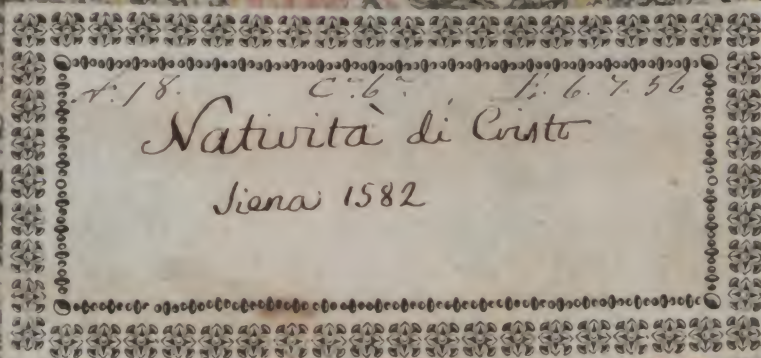 N. 18. C. 6. F. 6. 7. 56
Natività di Cristo
Siena 1582